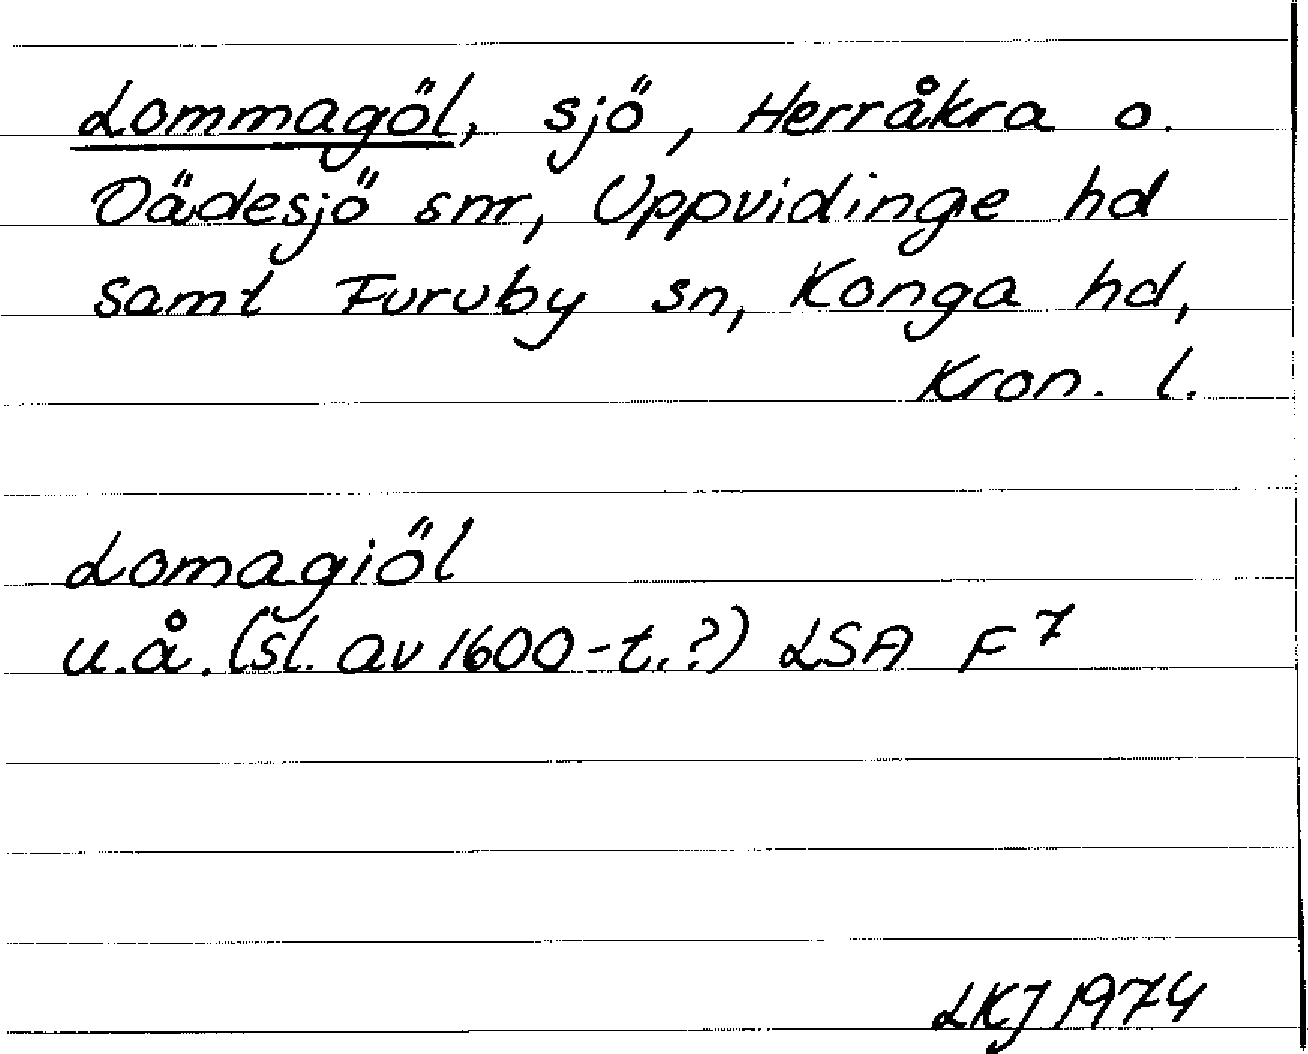 Lommagöl, sjö, Herråkra o.
Dädesjö snr, Uppvidinge hd
samt Furuby sn, Konga hd,
Kron. l.
Lomagiöl
u.å. (sl. av 1600-t.?) LSA F7
LKJ 1974